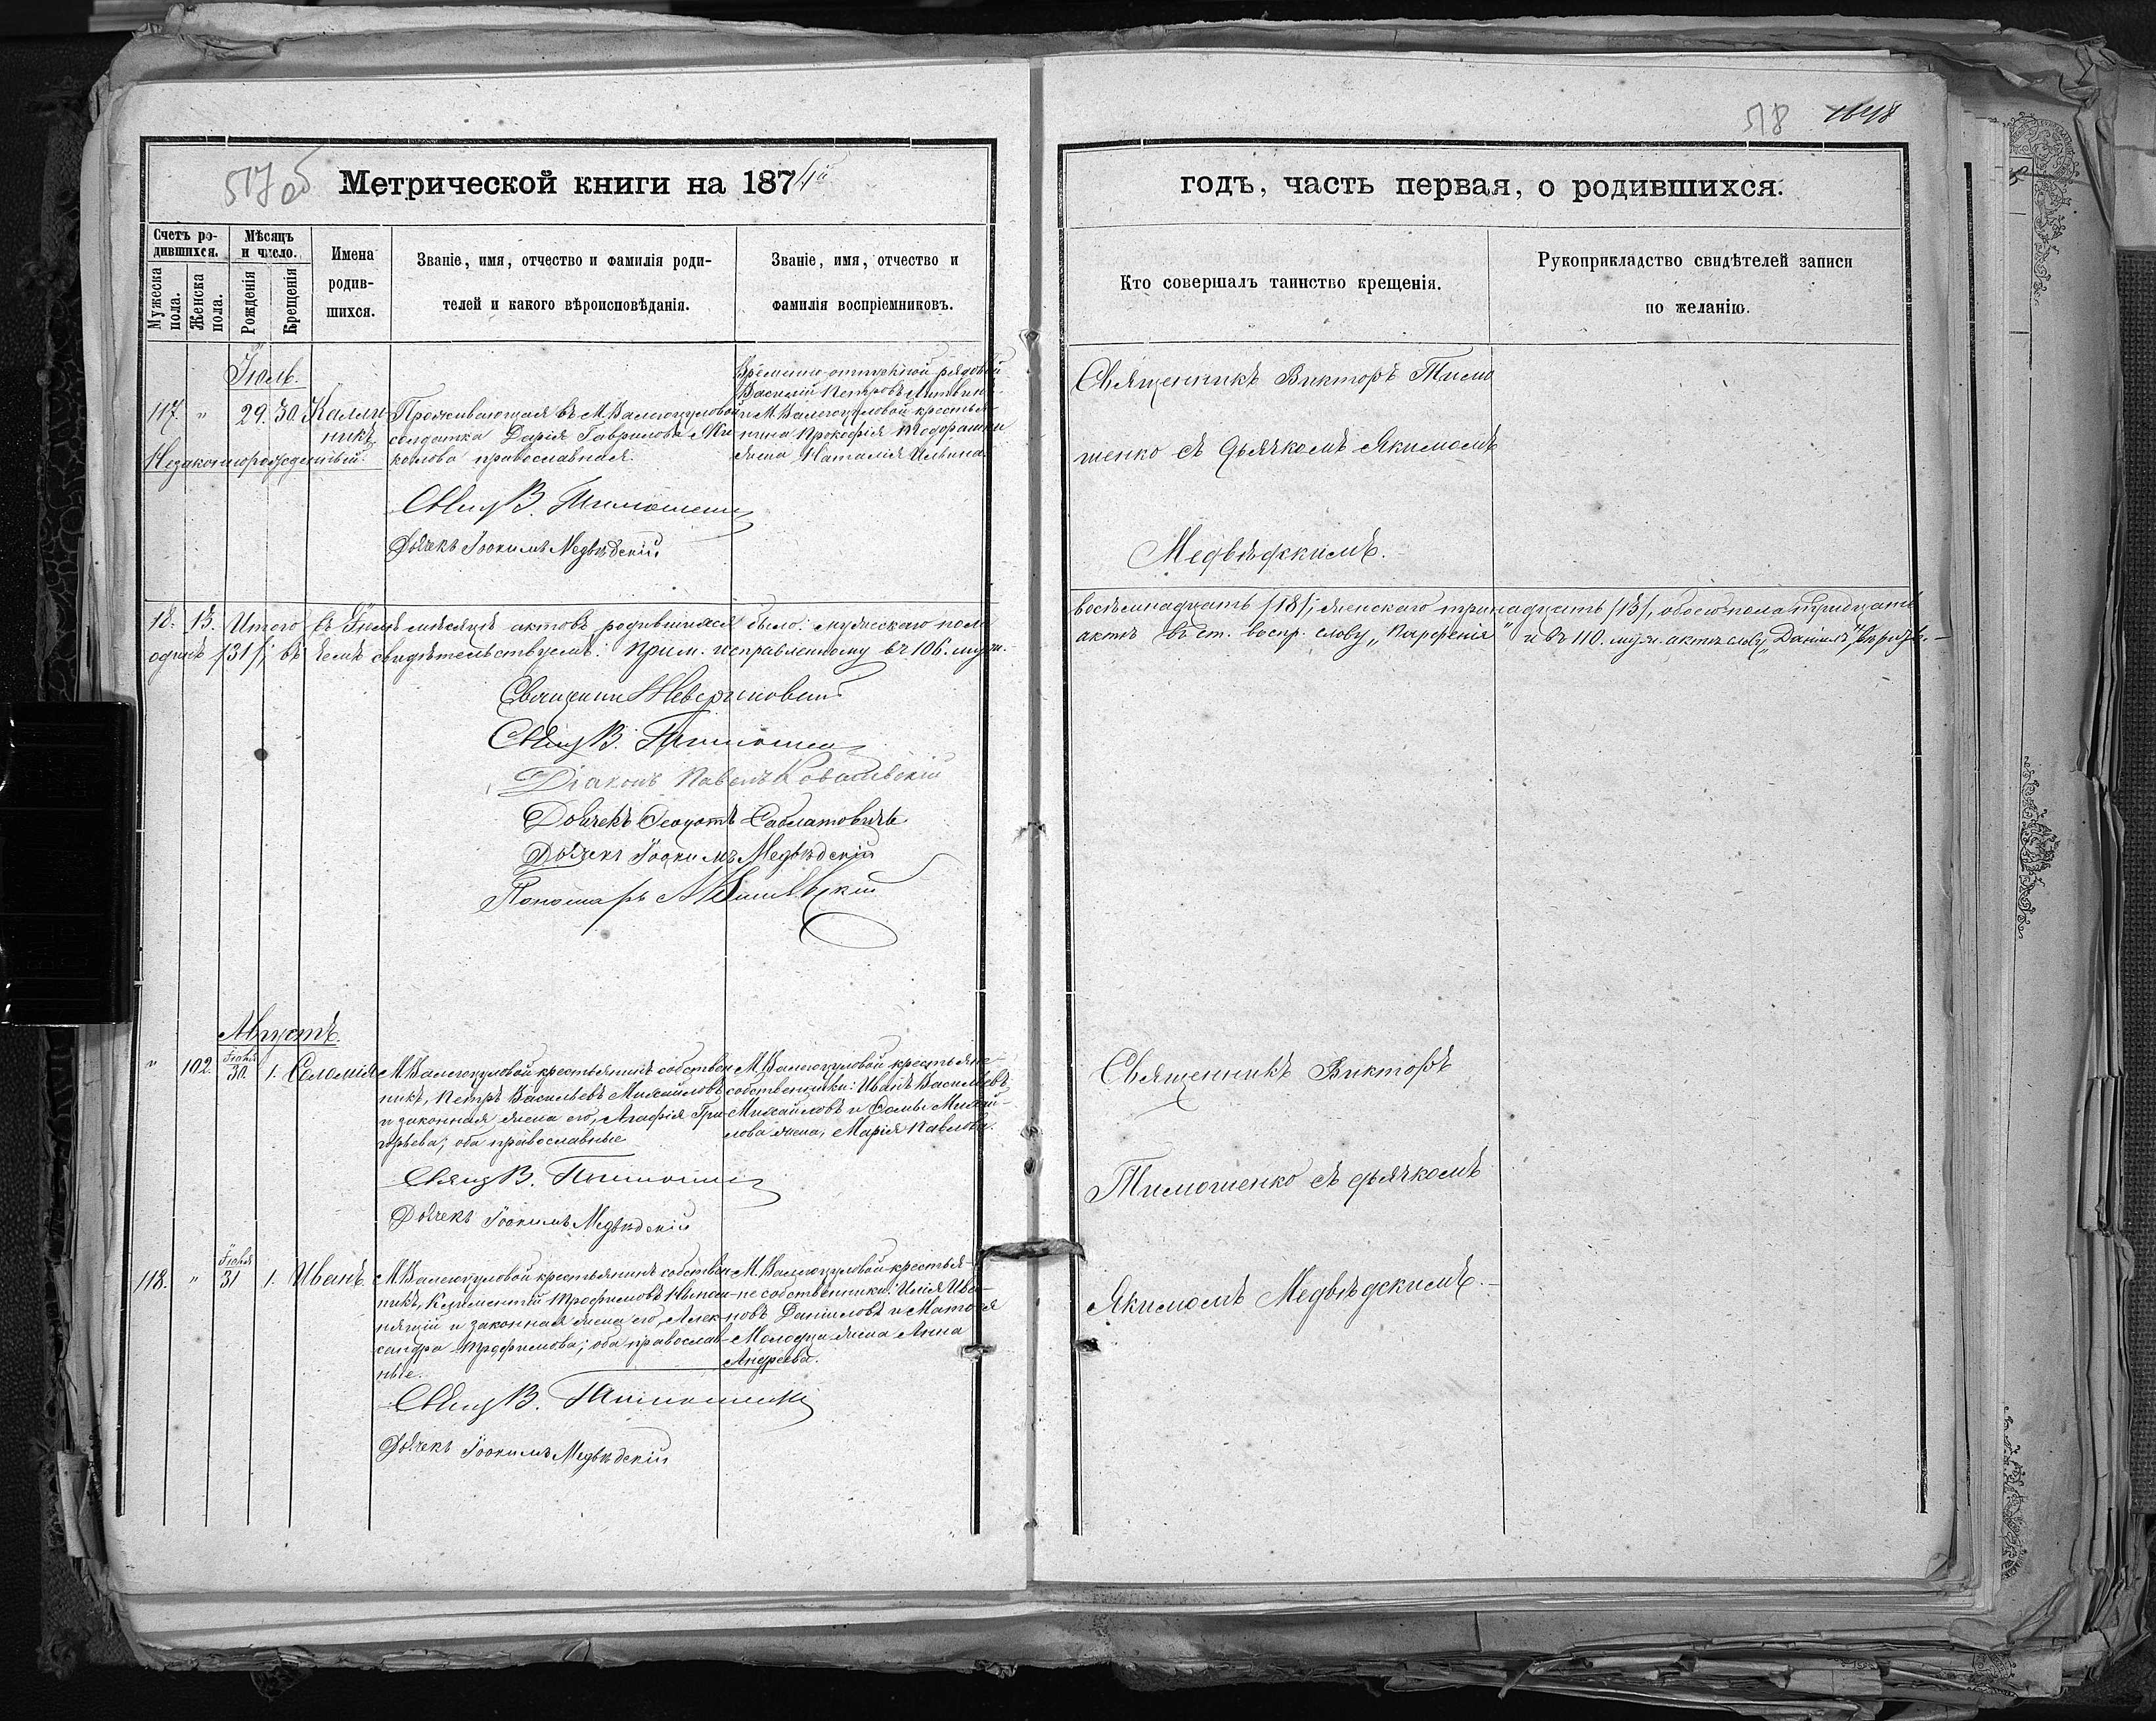 518 1648
517 об Метрической книги на 1874й
годъ, часть первая, о родившихся.
Счетъ ро-
дившихся.
Мужеска
пола.
Женска
пола.
Мѣсяцъ
и число.
Рожденія
Крещенія
Имена
родив-
шихся.
Званіе, имя, отчество и фамилія роди-
телей и какого вѣроисповѣданія.
Званіе, имя, отчество и
фамилія воспріемниковъ.
Кто совершалъ таинство крещенія.
Рукоприкладство свидѣтелей записи
по желанію.
Іюль.
117. " 29. 30. Калли-
никъ
Незаконнорожденный.
Проживающая въ М. Валегоцуловой
солдатка Дарія Гаврилова
православная.
рядовой
Василій Петровъ
и М. Валегоцуловой крестья-
нина Прокофія
жена Наталія Ильина.
Свящ В. Тимошенко
Дьячекъ Іоакимъ Медвѣдскій
Священникъ Викторъ Тимо
шенко съ дьячкомъ Якимомъ
Медвѣдскимъ.
18. 13. Итого въ Іюлѣ мѣсяцѣ актовъ родившихся было: мужескаго пола
восемнадцать /18/, женскаго тринадцать /13/, обоего пола тридцать
одинъ /31/; въ чемъ свидѣтельствуемъ. Прим. исправленному въ 106. муж.
актѣ въ ст. воспр. слову „Парфенія" и въ 110. муж. актѣ слову „Даніилъ"
Священникъ
Свящ В. Тимошенко
Діаконъ Павелъ Ковалевскій
Дьячекъ Ѳеодотъ
Дьячекъ Іоакимъ Медвѣдскій
Пономарь
Августъ.
" 102. Іюля 30 1. Соломія
М. Валегоцуловой крестьянинъ собствен
никъ, Петръ Васильевъ Михайловъ
и законная жена его, Агафія Гри-
горьева; оба православные
М. Валегоцуловой крестьяне
собственники: Иванъ Васильевъ
Михайловъ и Ѳомы Михай-
лова жена, Марія Павлова.
Свящ В. Тимошенко
Дьячекъ Іоакимъ Медвѣдскій
Священникъ Викторъ
Тимошенко съ дьячкомъ
Якимомъ Медвѣдскимъ.
118. " Іюля 31 1. Иванъ
М. Валегоцуловой крестьянинъ собствен
никъ, Климентій Трофимовъ
и законная жена его, Алек-
сандра Трофимова; оба православ-
ные.
М. Валегоцуловой крестья-
не собственники: Илія Ива-
новъ Даниловъ и Матѳея
Молодца жена Анна
Андреева.
Свящ В. Тимошенко
Дьячекъ Іоакимъ Медвѣдскій